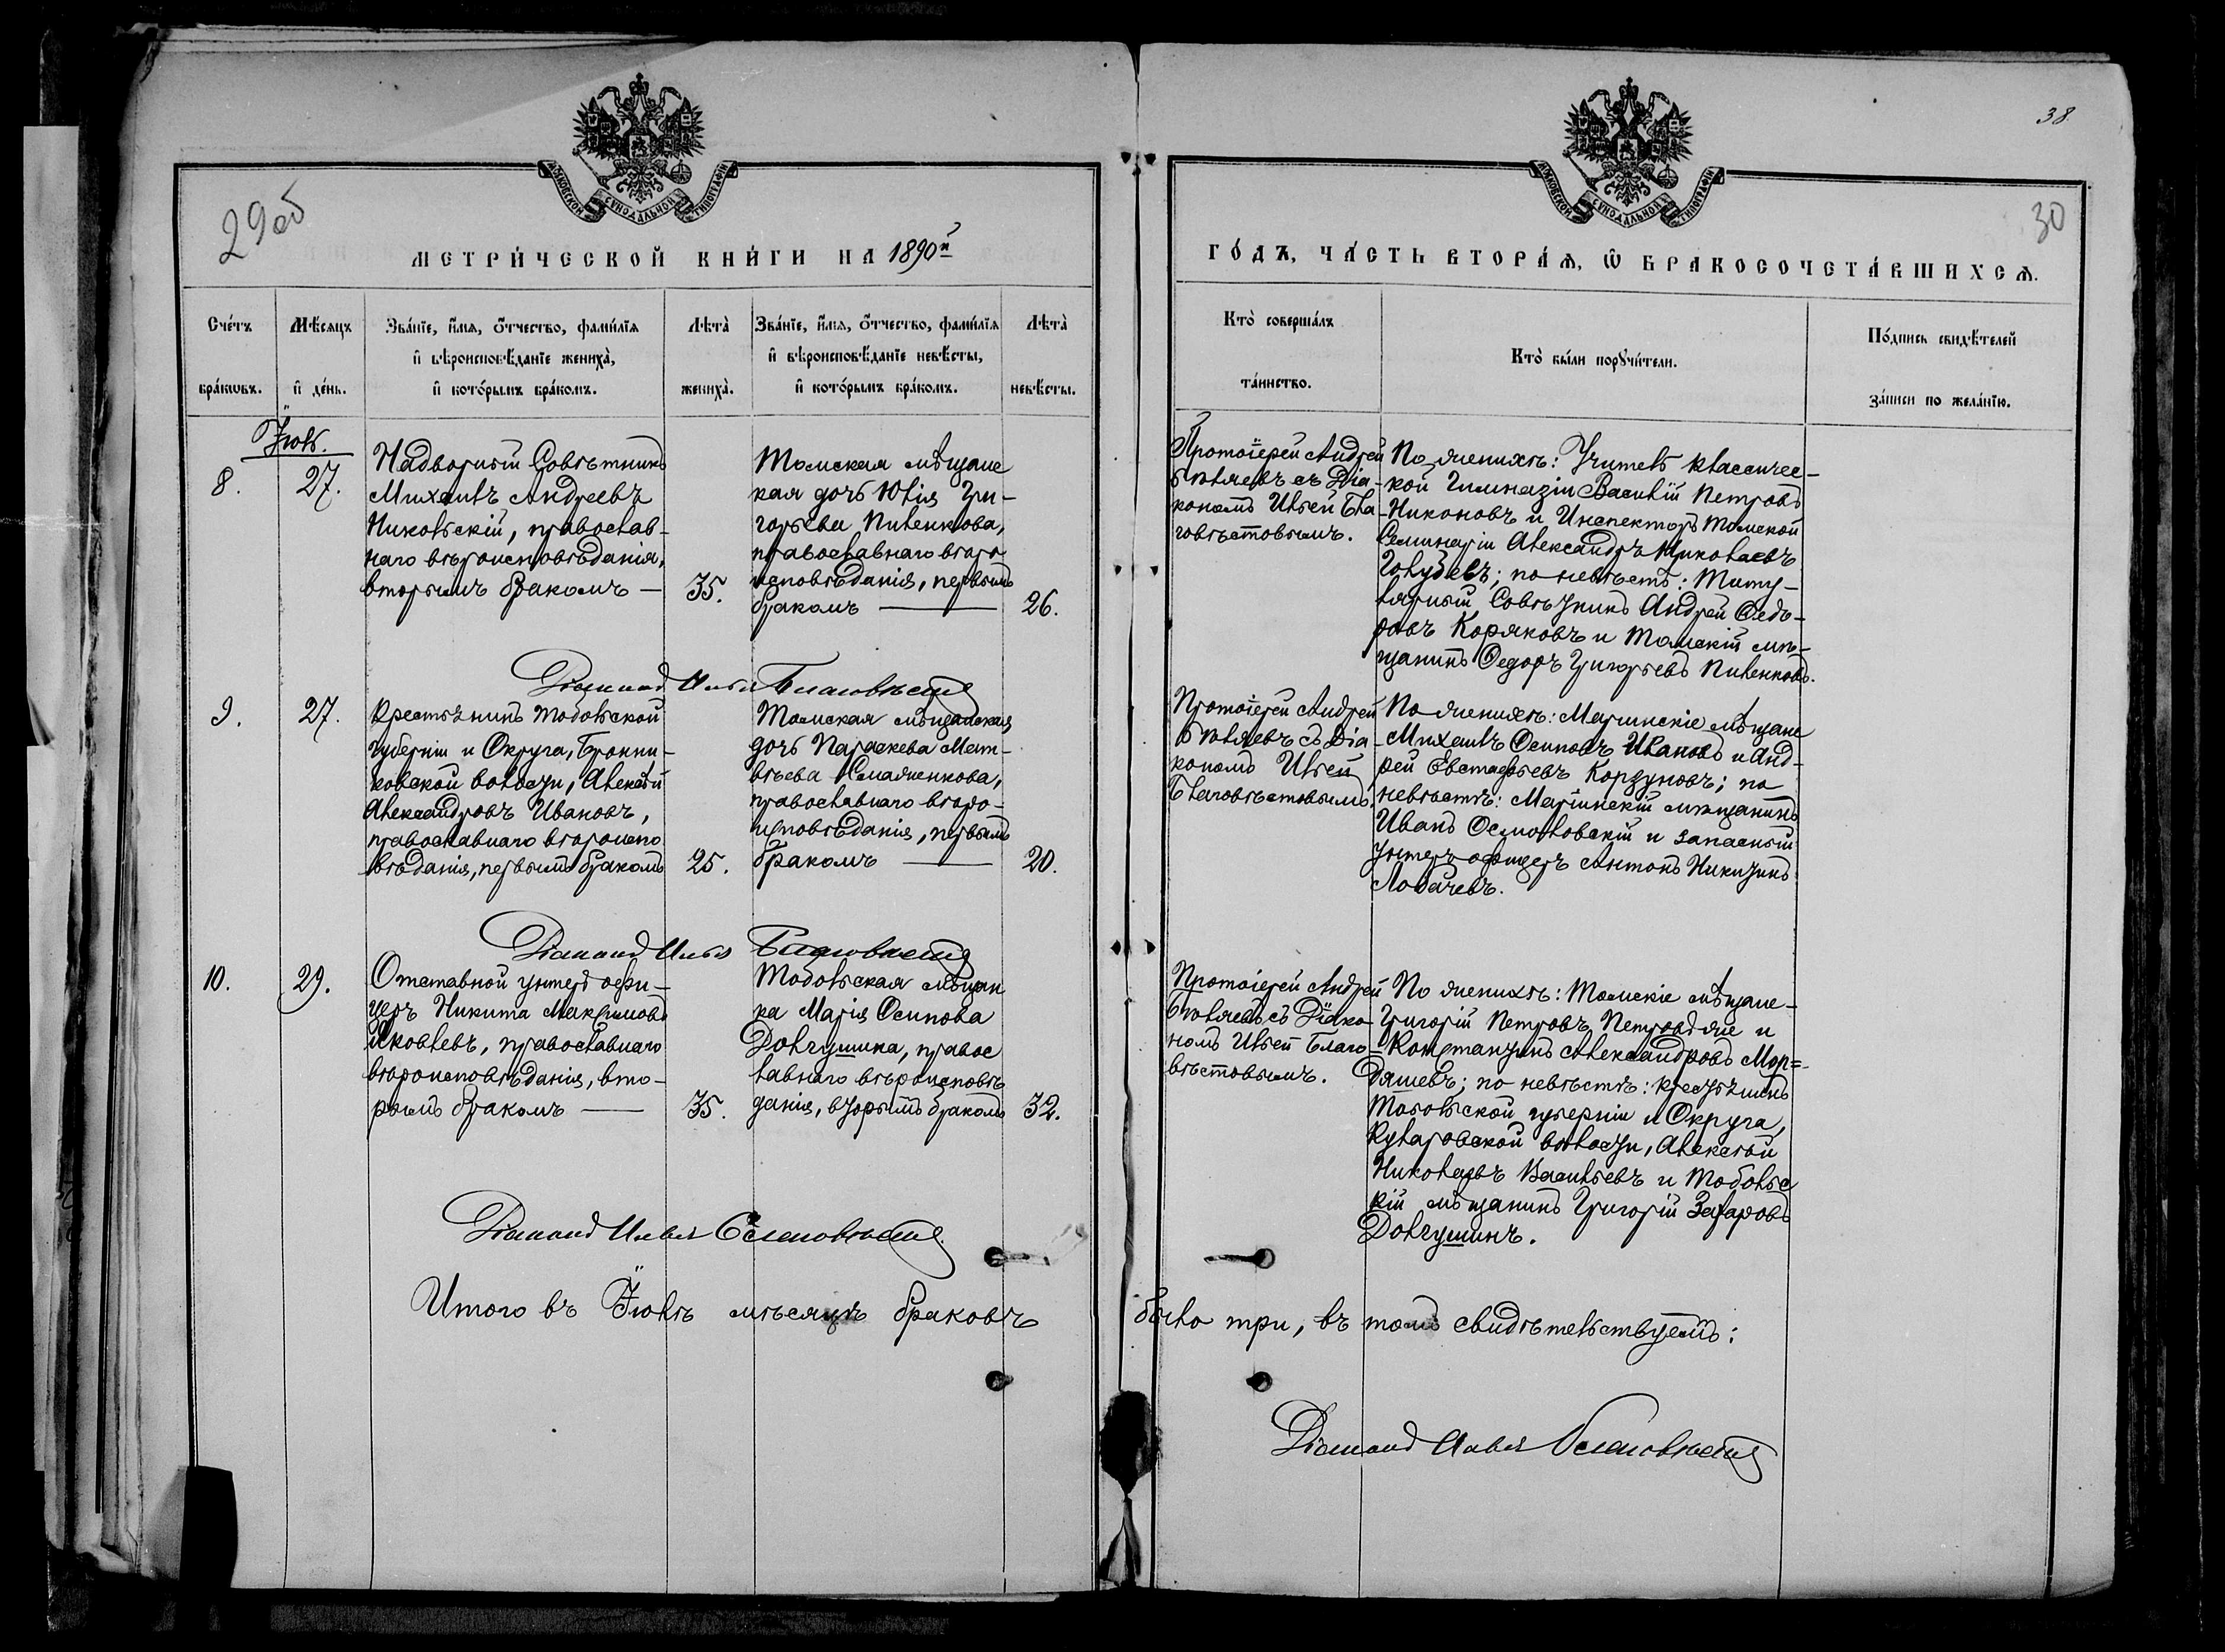 38.
29об
30
МОСКОВСКОЙ СѴНОДАЛЬНОЙ ТИПОГРАФІИ
МОСКОВСКОЙ СѴНОДАЛЬНОЙ ТИПОГРАФІИ
МЕТРИ́ЧЕСКОЙ КНИ́ГИ НА 1890й
ГО́ДЪ, ЧА́СТЬ ВТОРА́Ѧ, Ѽ БРАКОСОЧЕТА́ВШИХСѦ.
Сче́тъ бра́ковъ.
Мѣ́сяцъ и҆ де́нь.
Зва́нїе, и҆́мѧ, ѻ҆́тчество, фами́лїѧ и҆ вѣроисповѣ́данїе жениха̀, и҆ кото́рымъ бра́комъ.
Лѣта̀ жениха̀.
Зва́нїе, и҆́мѧ, ѻ҆́тчество, фами́лїѧ и҆ вѣроисповѣ́данїе невѣ́сты, и҆ кото́рымъ бра́комъ.
Лѣта̀ невѣ́сты.
Кто̀ соверша́лъ та́инство.
Кто̀ бы́ли порꙋчи́тели.
По́дпись свидѣ́телей за́писи по жела́нїю.
Іюль.
8.
27.
Надворный Совѣтникъ
Михаилъ Андреевъ
Никольскій, православ-
наго вѣроисповѣданія,
вторымъ бракомъ —
35.
Томская мѣщанс
кая дочь Юлія Гри-
горьева Пиленкова,
православнаго вѣро
исповѣданія, первымъ
бракомъ —
26.
Протоіерей Андрей
Бѣляевъ съ Діа-
кономъ Ильей Бла
говѣстовымъ.
По женихѣ: Учитель классичес-
кой Гимназіи Василій Петровъ
Никоновъ и Инспекторъ Томской
Семинаріи Александръ Николаевъ
Голубевъ; по невѣстѣ: Титу-
лярный Совѣтникъ Андрей Ѳедо-
ровъ Коряковъ и Томскій мѣ-
щанинъ Ѳедоръ Григорьевъ Пиленковъ.
Діаконъ Илья Благовѣстовъ
9.
27.
Крестьянинъ Тобольской
Губерніи и Округа, Бронни-
ковской волости, Алексѣй
Александровъ Ивановъ,
православнаго вѣроиспо
вѣданія, первымъ бракомъ
25.
Томская мѣщанская
дочь Параскева Мат-
вѣева
православнаго вѣро-
исповѣданія, первымъ
бракомъ —
20.
Протоіерей Андрей
Бѣляевъ съ Діа-
кономъ Ильей
Благовѣстовымъ.
По женихѣ: Маріинскіе мѣщане
Михаилъ Осиповъ Ивановъ и Анд-
рей Евстафьевъ Корзуновъ; по
невѣстѣ: Маріинскій мѣщанинъ
Иванъ Осмоловскій и запасный
унтеръ офицеръ Антонъ Никитинъ
Лобачевъ.
Діаконъ Илья Благовѣстовъ
10.
29.
Отставной унтеръ офи-
церъ Никита Максимовъ
Яковлевъ, православнаго
вѣроисповѣданія, вто-
рымъ бракомъ —
35.
Тобольская мѣщан
ка Марія Осипова
Долгушина, правос
лавнаго вѣроисповѣ
данія, вторымъ бракомъ
32.
Протоіерей Андрей
Бѣляевъ съ Діако-
номъ Ильей Благо-
вѣстовымъ.
По женихѣ: Томскіе мѣщане-
Григорій Петровъ и
Константинъ Александровъ Мор=
дяшевъ; по невѣстѣ: крестьянинъ
Тобольской губерніи и Округа,
Куларовской волости, Алексѣй
Николаевъ Васильевъ и Тобольс
кій мѣщанинъ Григорій Захаровъ
Долгушинъ.
Діаконъ Илья Благовѣстовъ
Итого въ Іюлѣ мѣсяцѣ браковъ было три, въ томъ свидѣтельствуемъ:
Діаконъ Илья Благовѣстовъ